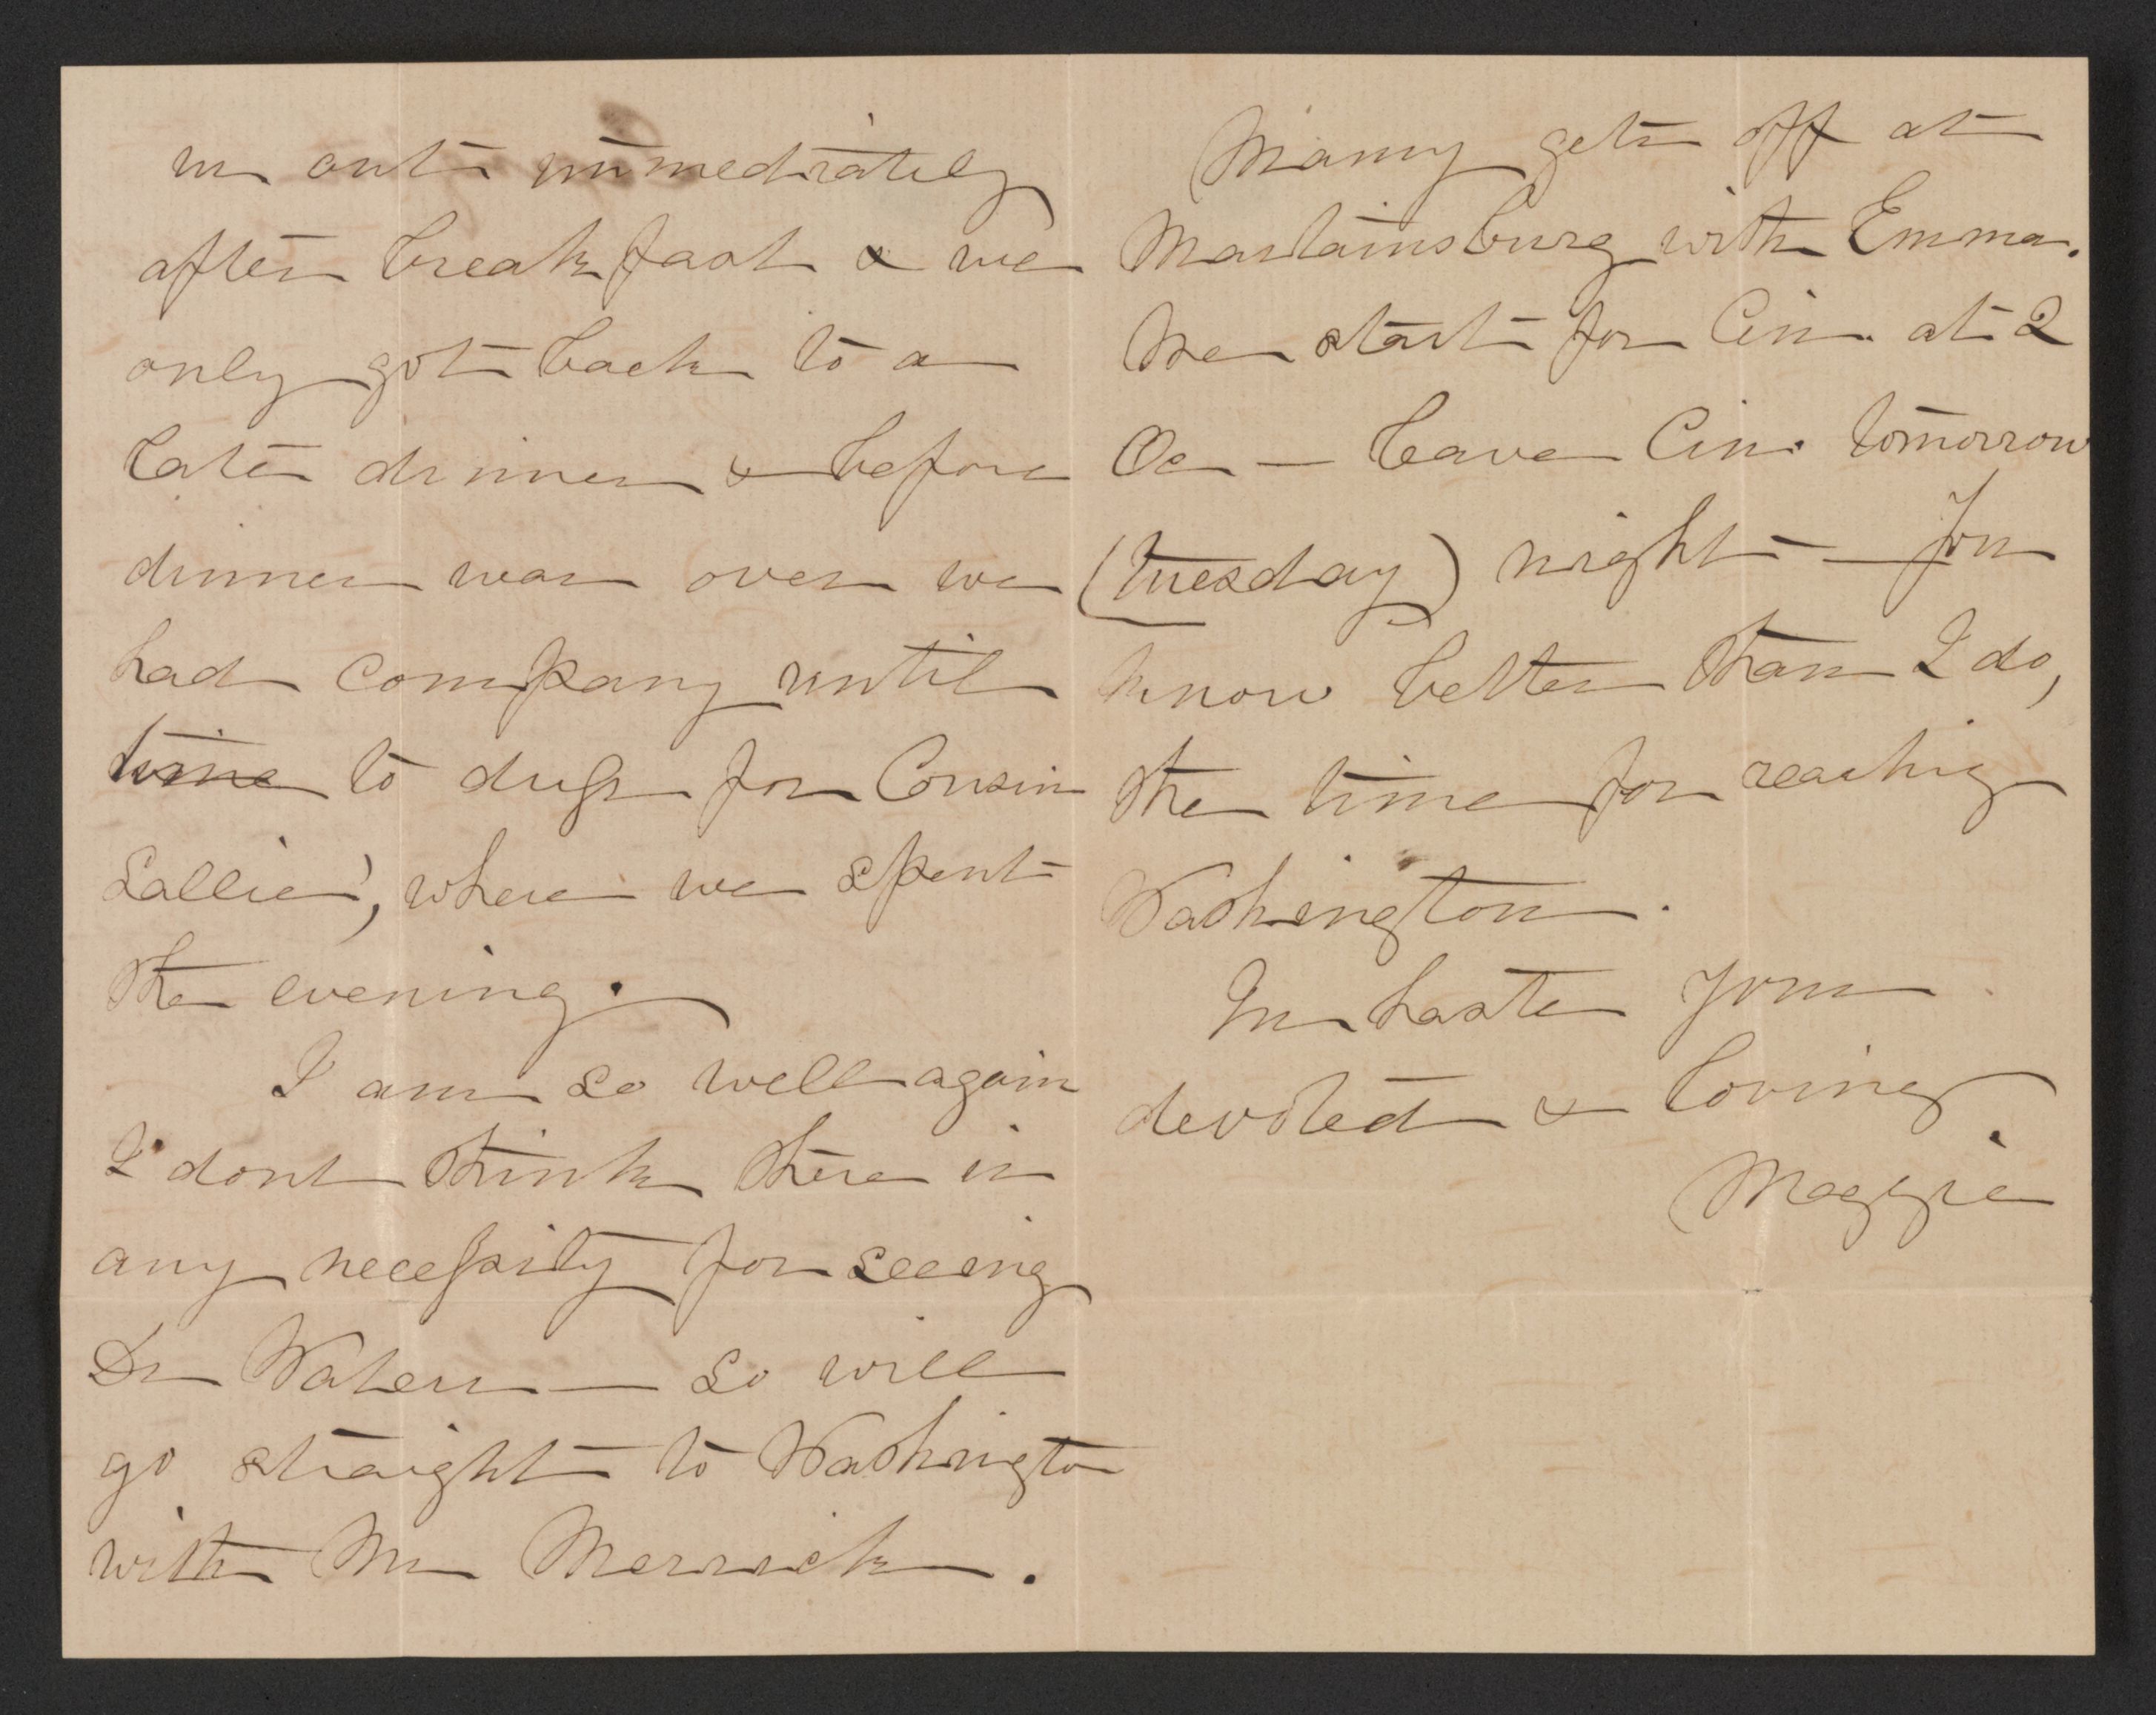 us out immediately
after breakfast & we
only got back to a
late dinner & before
dinner was over we
had company until
time to dress for Cousin
Sallie's, where we spent
the evening.
I am so well again
I dont think there is
any necessity for seeing
Dr Waters — so will
go straight to Washington
with Mr Merrick.
Mamy gets off at
Martainsburg with Emma.
We start for Cin. at 2
Oc — leave Cin. tomorrow
(Tuesday) night — You
know better than I do,
the time for reaching
Washington.
In haste your
devoted & loving
Maggie